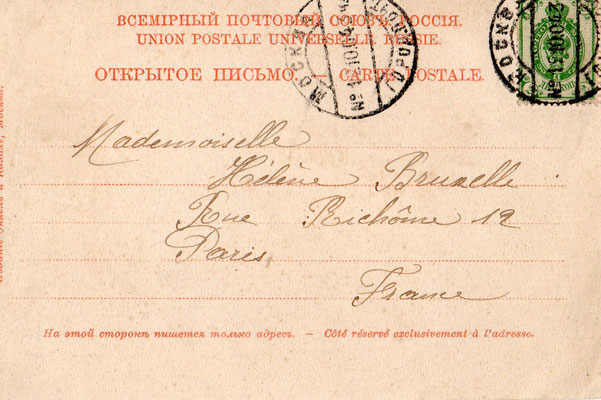 ВСЕМІРНЫЙ ПОЧТОВЫЙ СОЮЗЪ. РОССІЯ.
UNION POSTALE UNIVERSELLE. RUSSIE.
ОТКРЫТОЕ ПИСЬМО. — CARTE POSTALE.
МОСКВА
МОСКВА
Mademoiselle
Hélène Bruxelle
Rue Richôme 12
Paris
France
На этой сторонѣ пишется только адресъ. — Côté réservé exclusivement à l'adresse.